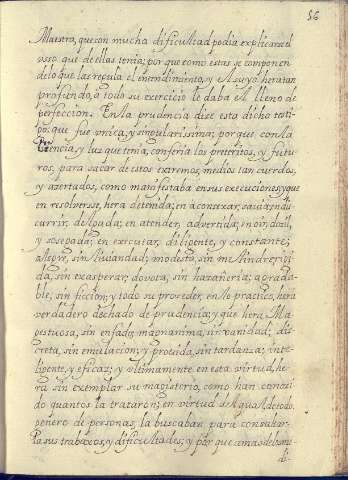 56
Maestra, que con mucha dificultad podia explicar el
vsso que de ellas tenia; por que como estas se componen
de lo que las regula el entendimiento, y el suyo hera tan
profundo, a todo su exercicio le daba el lleno de
perfeccion. En la prudencia dize esta dicho testi-
go, que fue vnica, y singularissima; por que con la
ciencia, y luz que tenia, conferia los preteritos, y futu-
ros, para sacar de estos extremos, medios tan cuerdos,
y azertados, como manifestaba en sus execuciones, y que
en resolverse, hera detenida; en aconsexar, savia; en dis-
currir, delgada; en atender, advertida; en oir, docil,
y sosegada; en executar, diligente, y constante;
alegre, sin liviandad; modesta, sin melindre; rigi-
da, sin exasperar; devota, sin hazañeria; agrada-
ble, sin ficcion; y todo su proceder, en lo practico, hera
verdadero dechado de prudencia; y que hera Ma-
gestuosa, sin enfado; magnanima, sin vanidad; dis-
creta, sin emulacion; y provida, sin tardanza; inte-
ligente, y eficaz; y vltimamente en esta virtud, he-
ra sin exemplar su magisterio, como han conozi-
do quantos la trataron; en virtud de lo qual, de todo
genero de personas, la buscaban para consultar-
la sus trabaxos, y dificultades; y por que a mas de los me-
di-